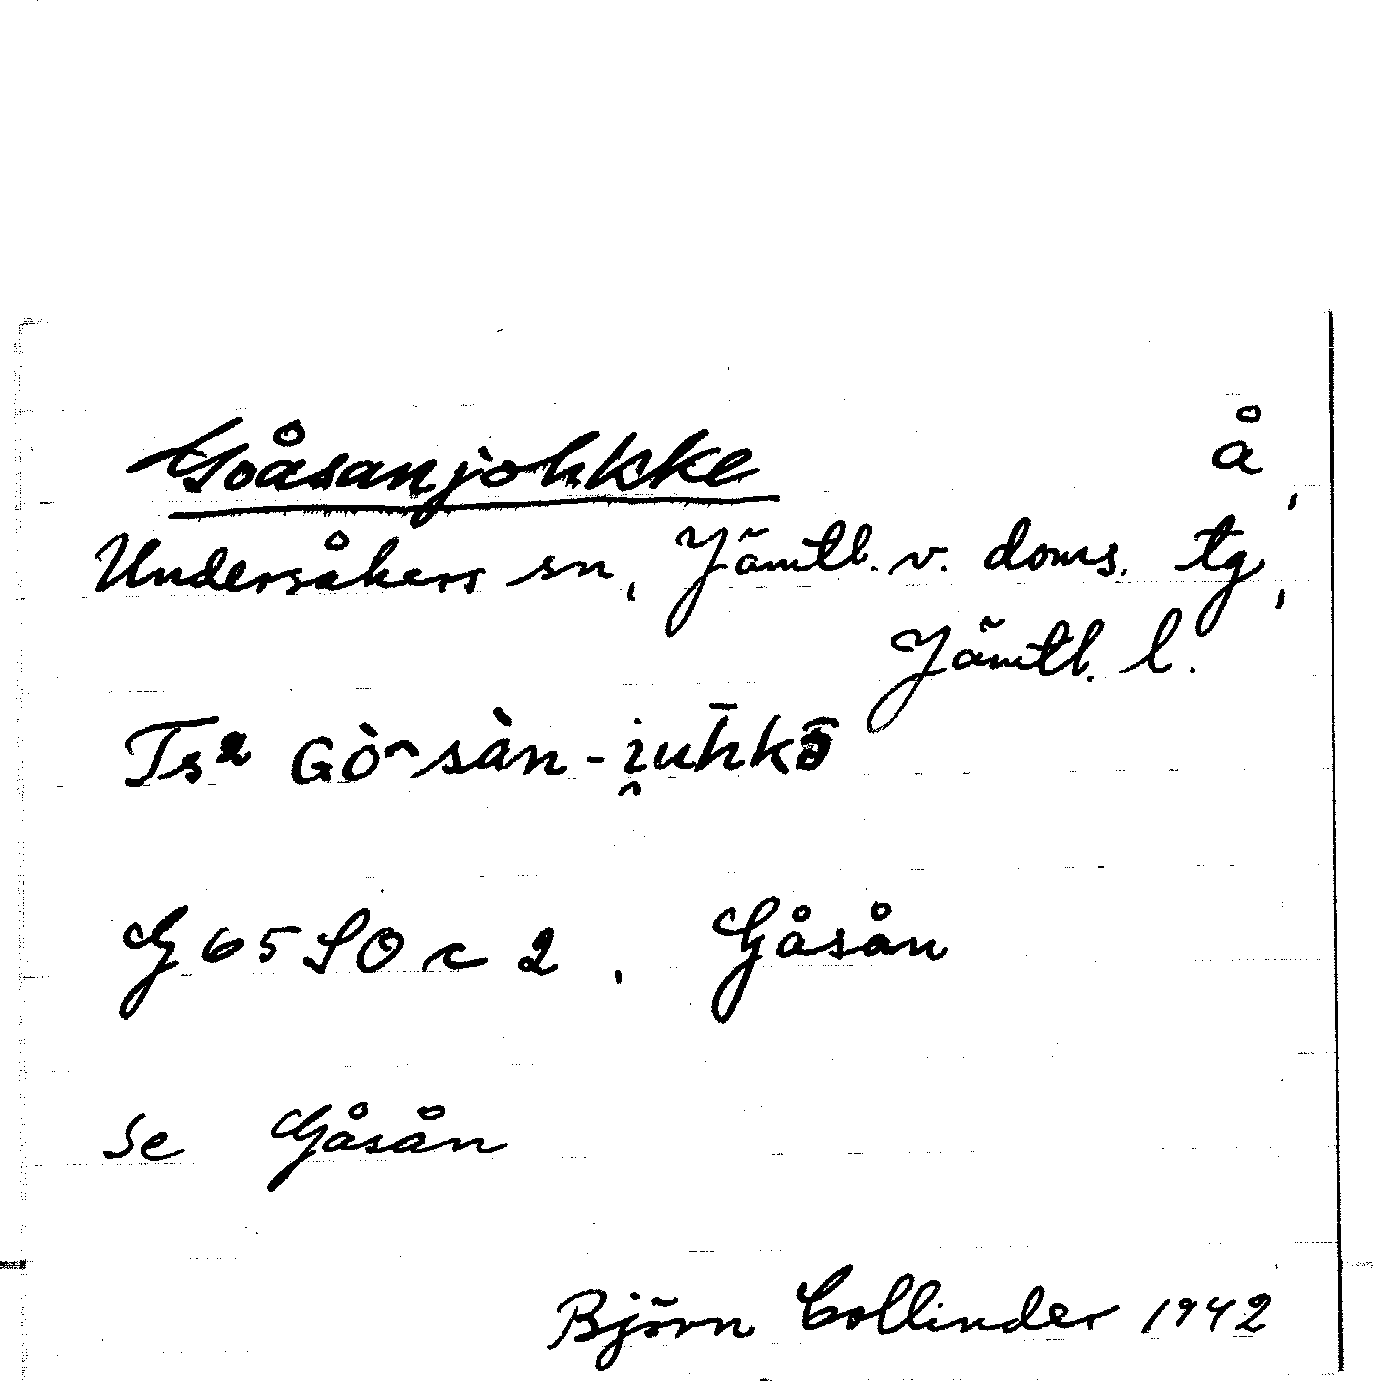 Goåsanjohkke å,
Undersåkers sn, Jämtl. v. doms. tg,
Jämtl. l.
Ts2 Gò̯sàn-i̯uh̄kō̂
G 65 SO c 2, Gåsån
se Gåsån
Björn Collinder 1942